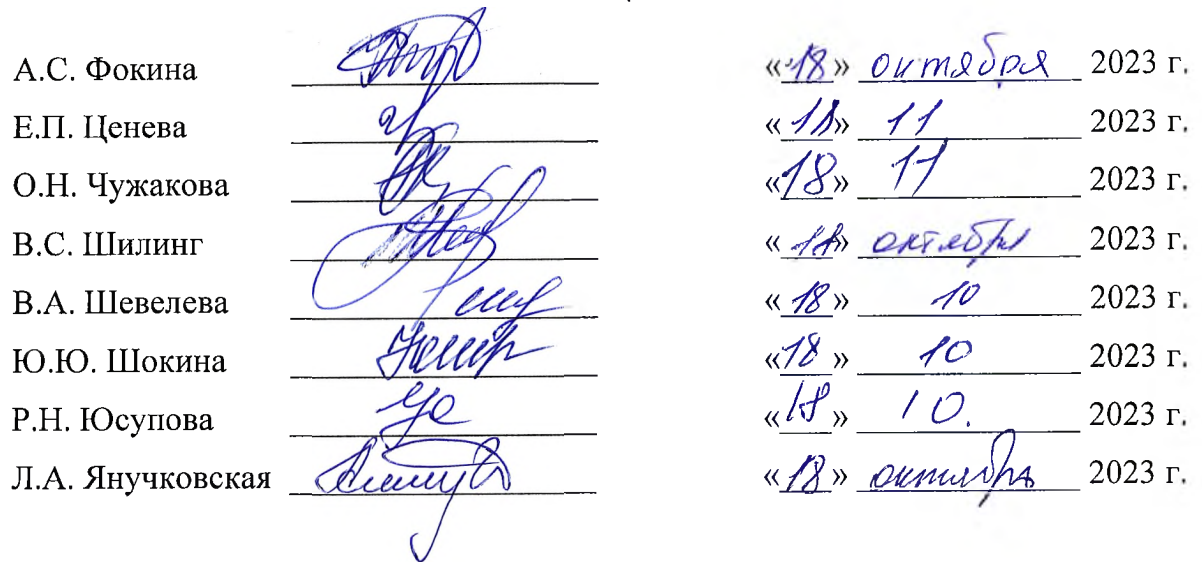 А.С. Фокина «18» октября 2023 г.
Е.П. Ценева «18» 11 2023 г.
О.Н. Чужакова «18» 11 2023 г.
В.С. Шилинг «18» октября 2023 г.
В.А. Шевелева «18» 10 2023 г.
Ю.Ю. Шокина «18» 10 2023 г.
Р.Н. Юсупова «18» 10. 2023 г.
Л.А. Янучковская «18» октября 2023 г.